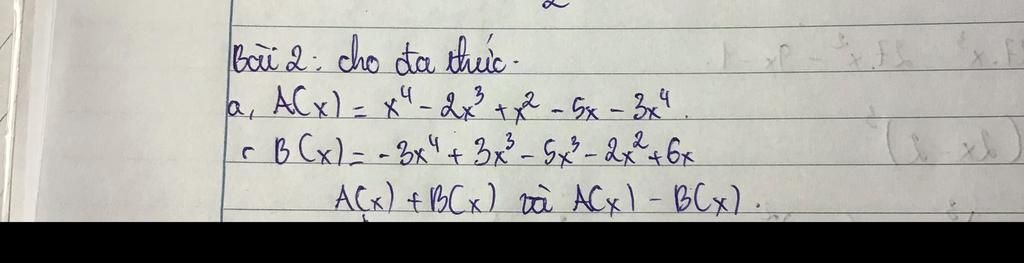 Bài 2: cho đa thức.
a, A(x) = x⁴ - 2x³ + x² - 5x - 3x⁴.
B(x) = -3x⁴ + 3x³ - 5x³ - 2x² + 6x
A(x) + B(x) và A(x) - B(x).